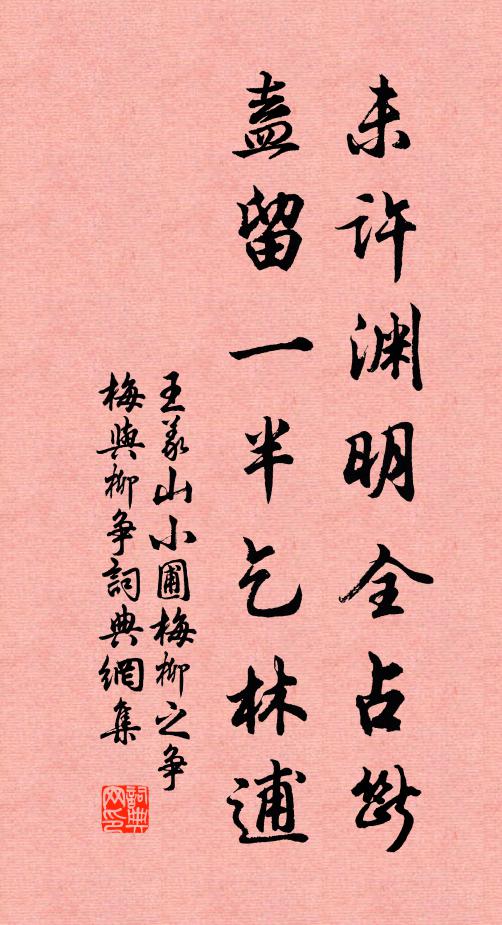 未许渊明全占断
盍留一半乞林逋
王义山小圃梅柳之争
梅与柳争词典网集
词典网印